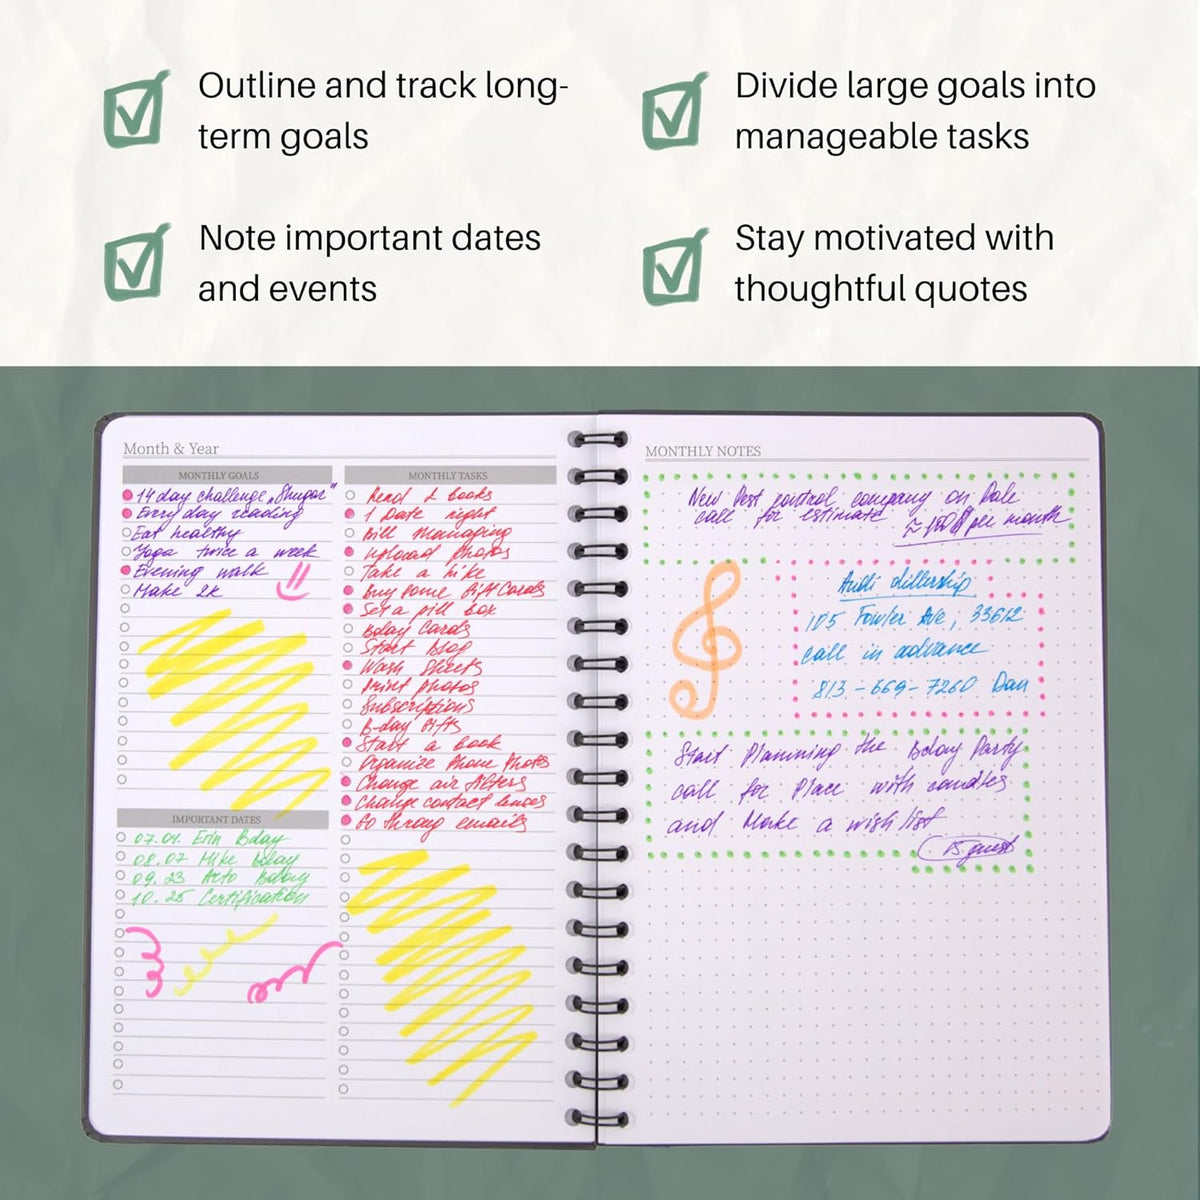 Outline and track long-
term goals
Divide large goals into
manageable tasks
Note important dates
and events
Stay motivated with
thoughtful quotes
Month & Year
MONTHLY GOALS
14 day challenge „Shugar"
Every day reading
Eat healthy
Yoga twice a week
Evening walk
Make 2k
IMPORTANT DATES
07.01. Erin Bday
08.07 Mike bday
09.23 Arto Bday
10.25 Certification
MONTHLY TASKS
Read 2 books
1 Date night
Bill Managing
Upload photos
Take a hike
Buy some Gift Cards
Set a pill box
Bday Cards
Start Blog
Wash Sheets
Print photos
Subscriptions
B-day Gifts
Start a book
Organize Phone Photos
Change air filters
Change contact lenses
Go throug emails
MONTHLY NOTES
New Pest control company on Dale
call for estimate
per month
Audi dillership
105 Fowler Ave, 33612
call in advance
813-669-7260 Dan
Start Planning the Bday Party
call for Place with candles
and Make a wish list
15 guest